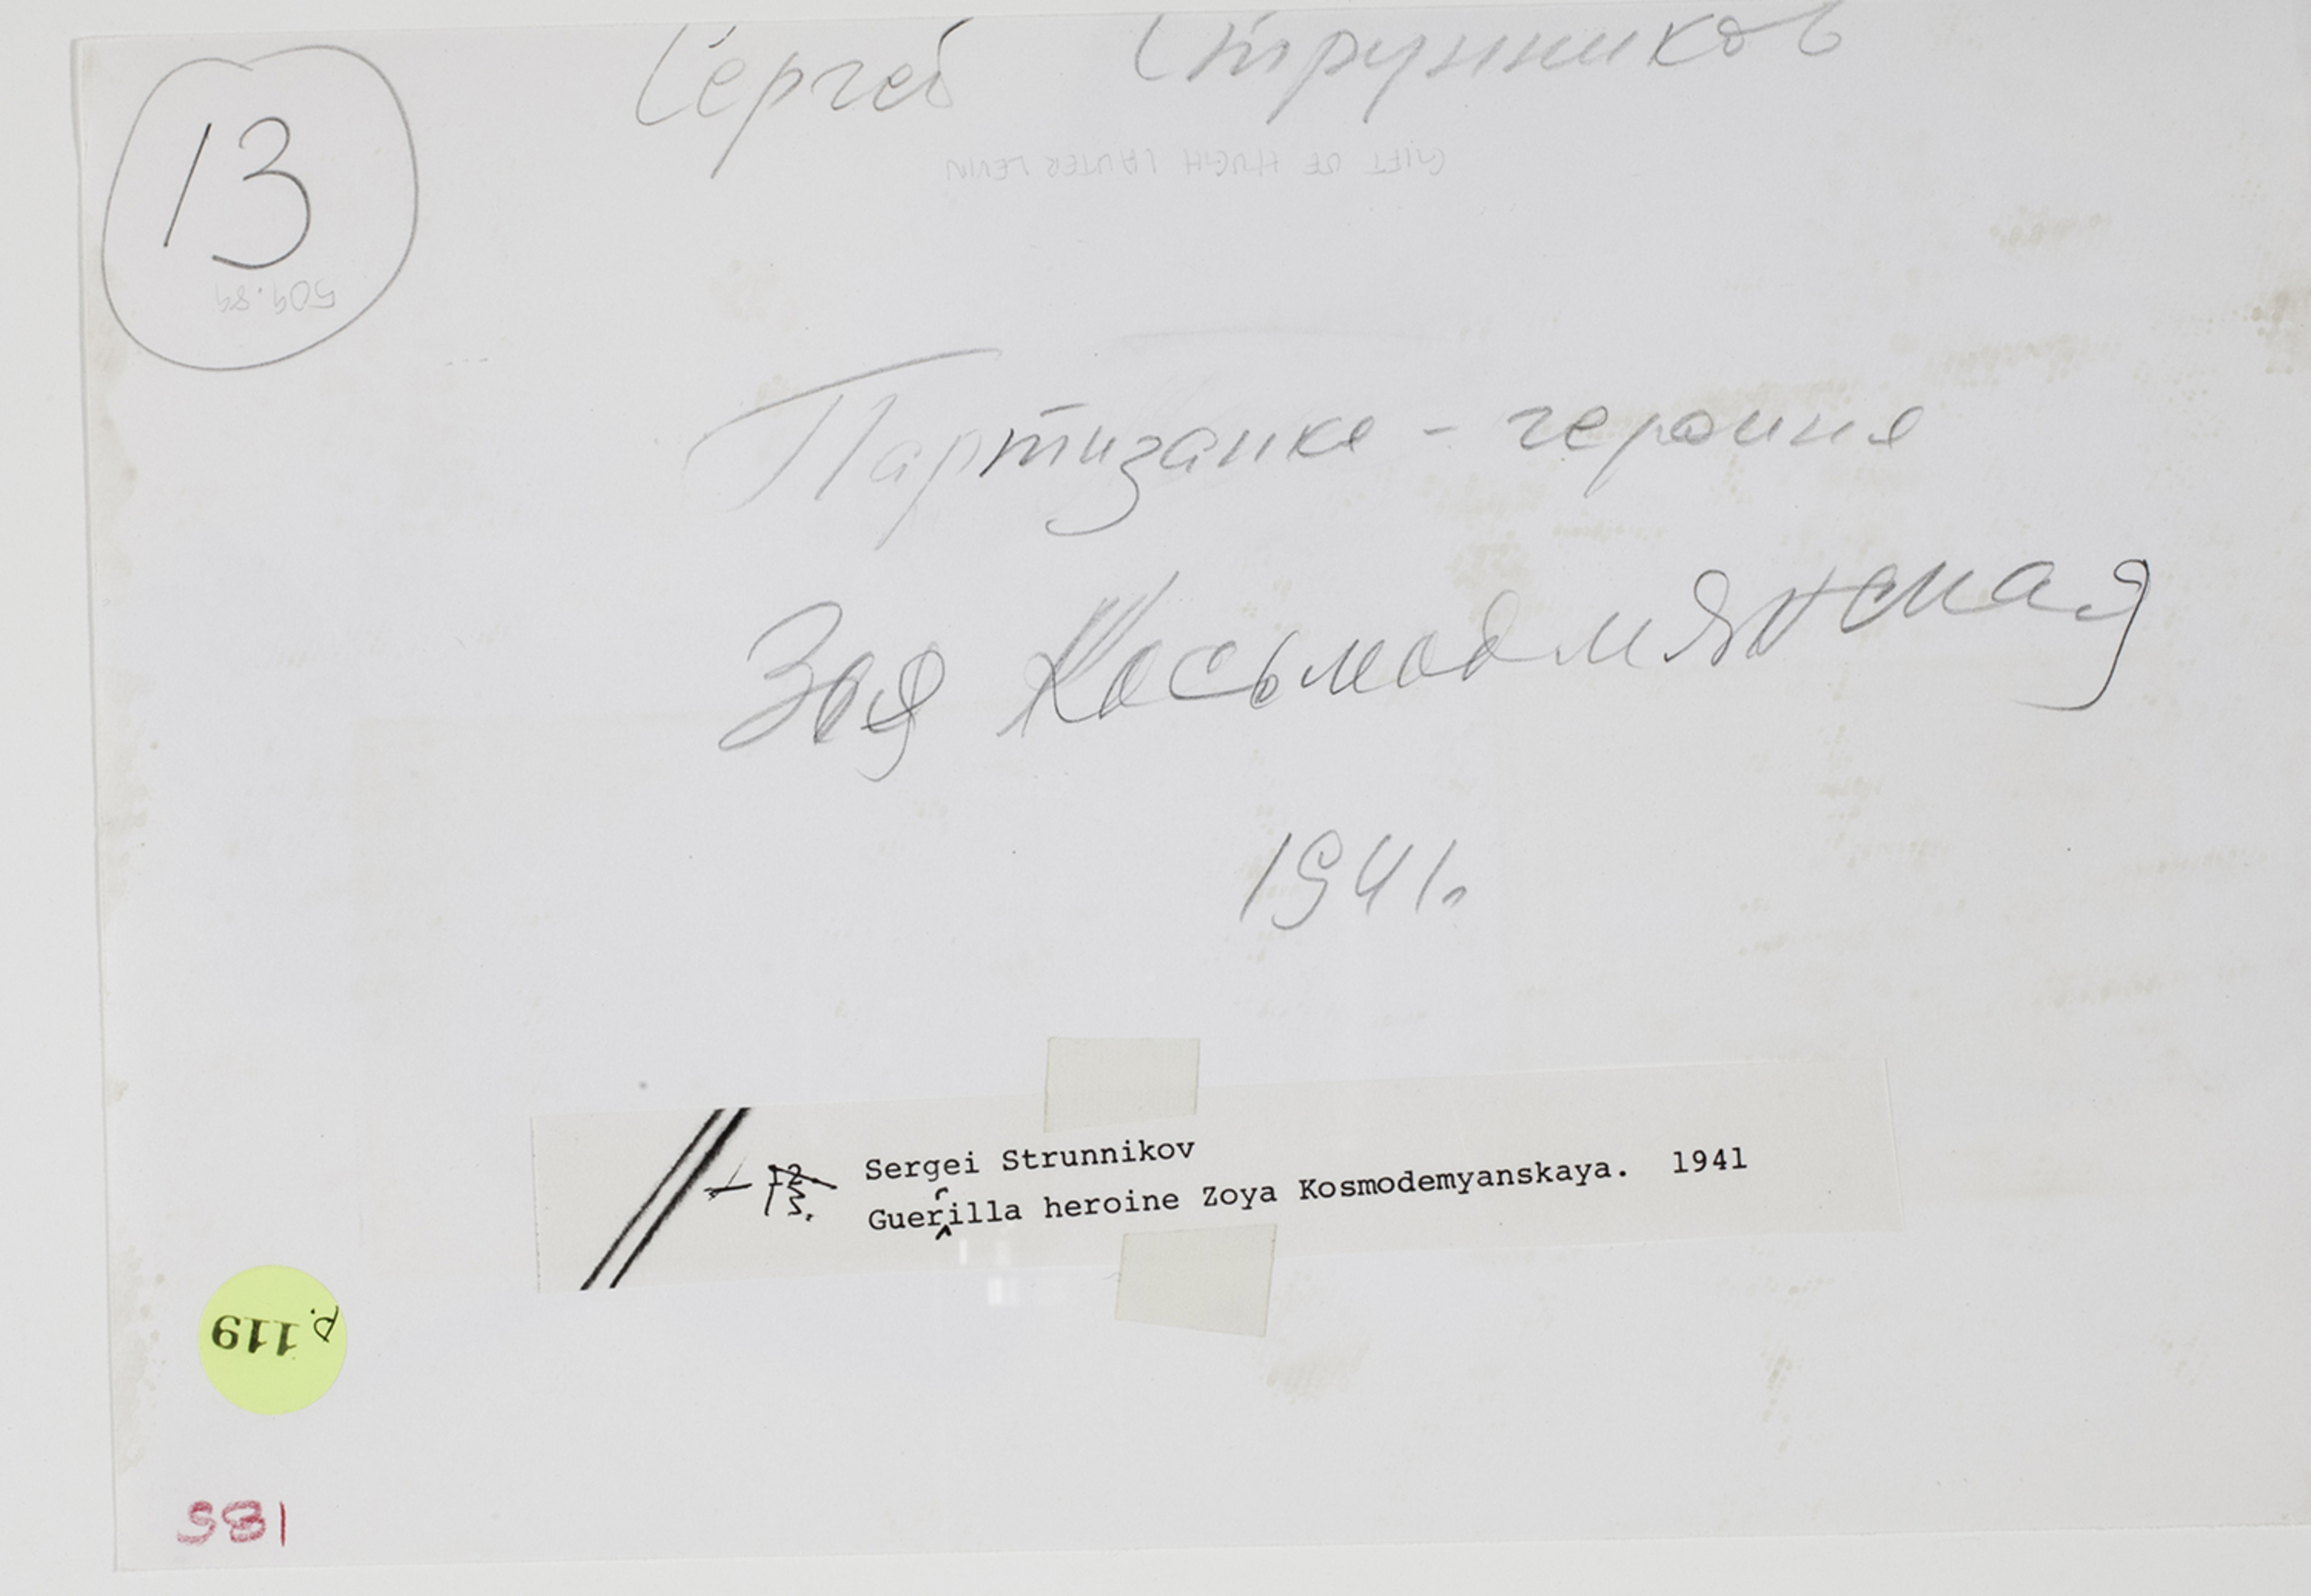 Сергей Струнников
13
GIFT OF HUGH LAUTER LEVIN
Партизанка - героиня
Зоя Косьмодмянская
1941г.
13. Sergei Strunnikov
Guerrilla heroine Zoya Kosmodemyanskaya. 1941
p. 119
185